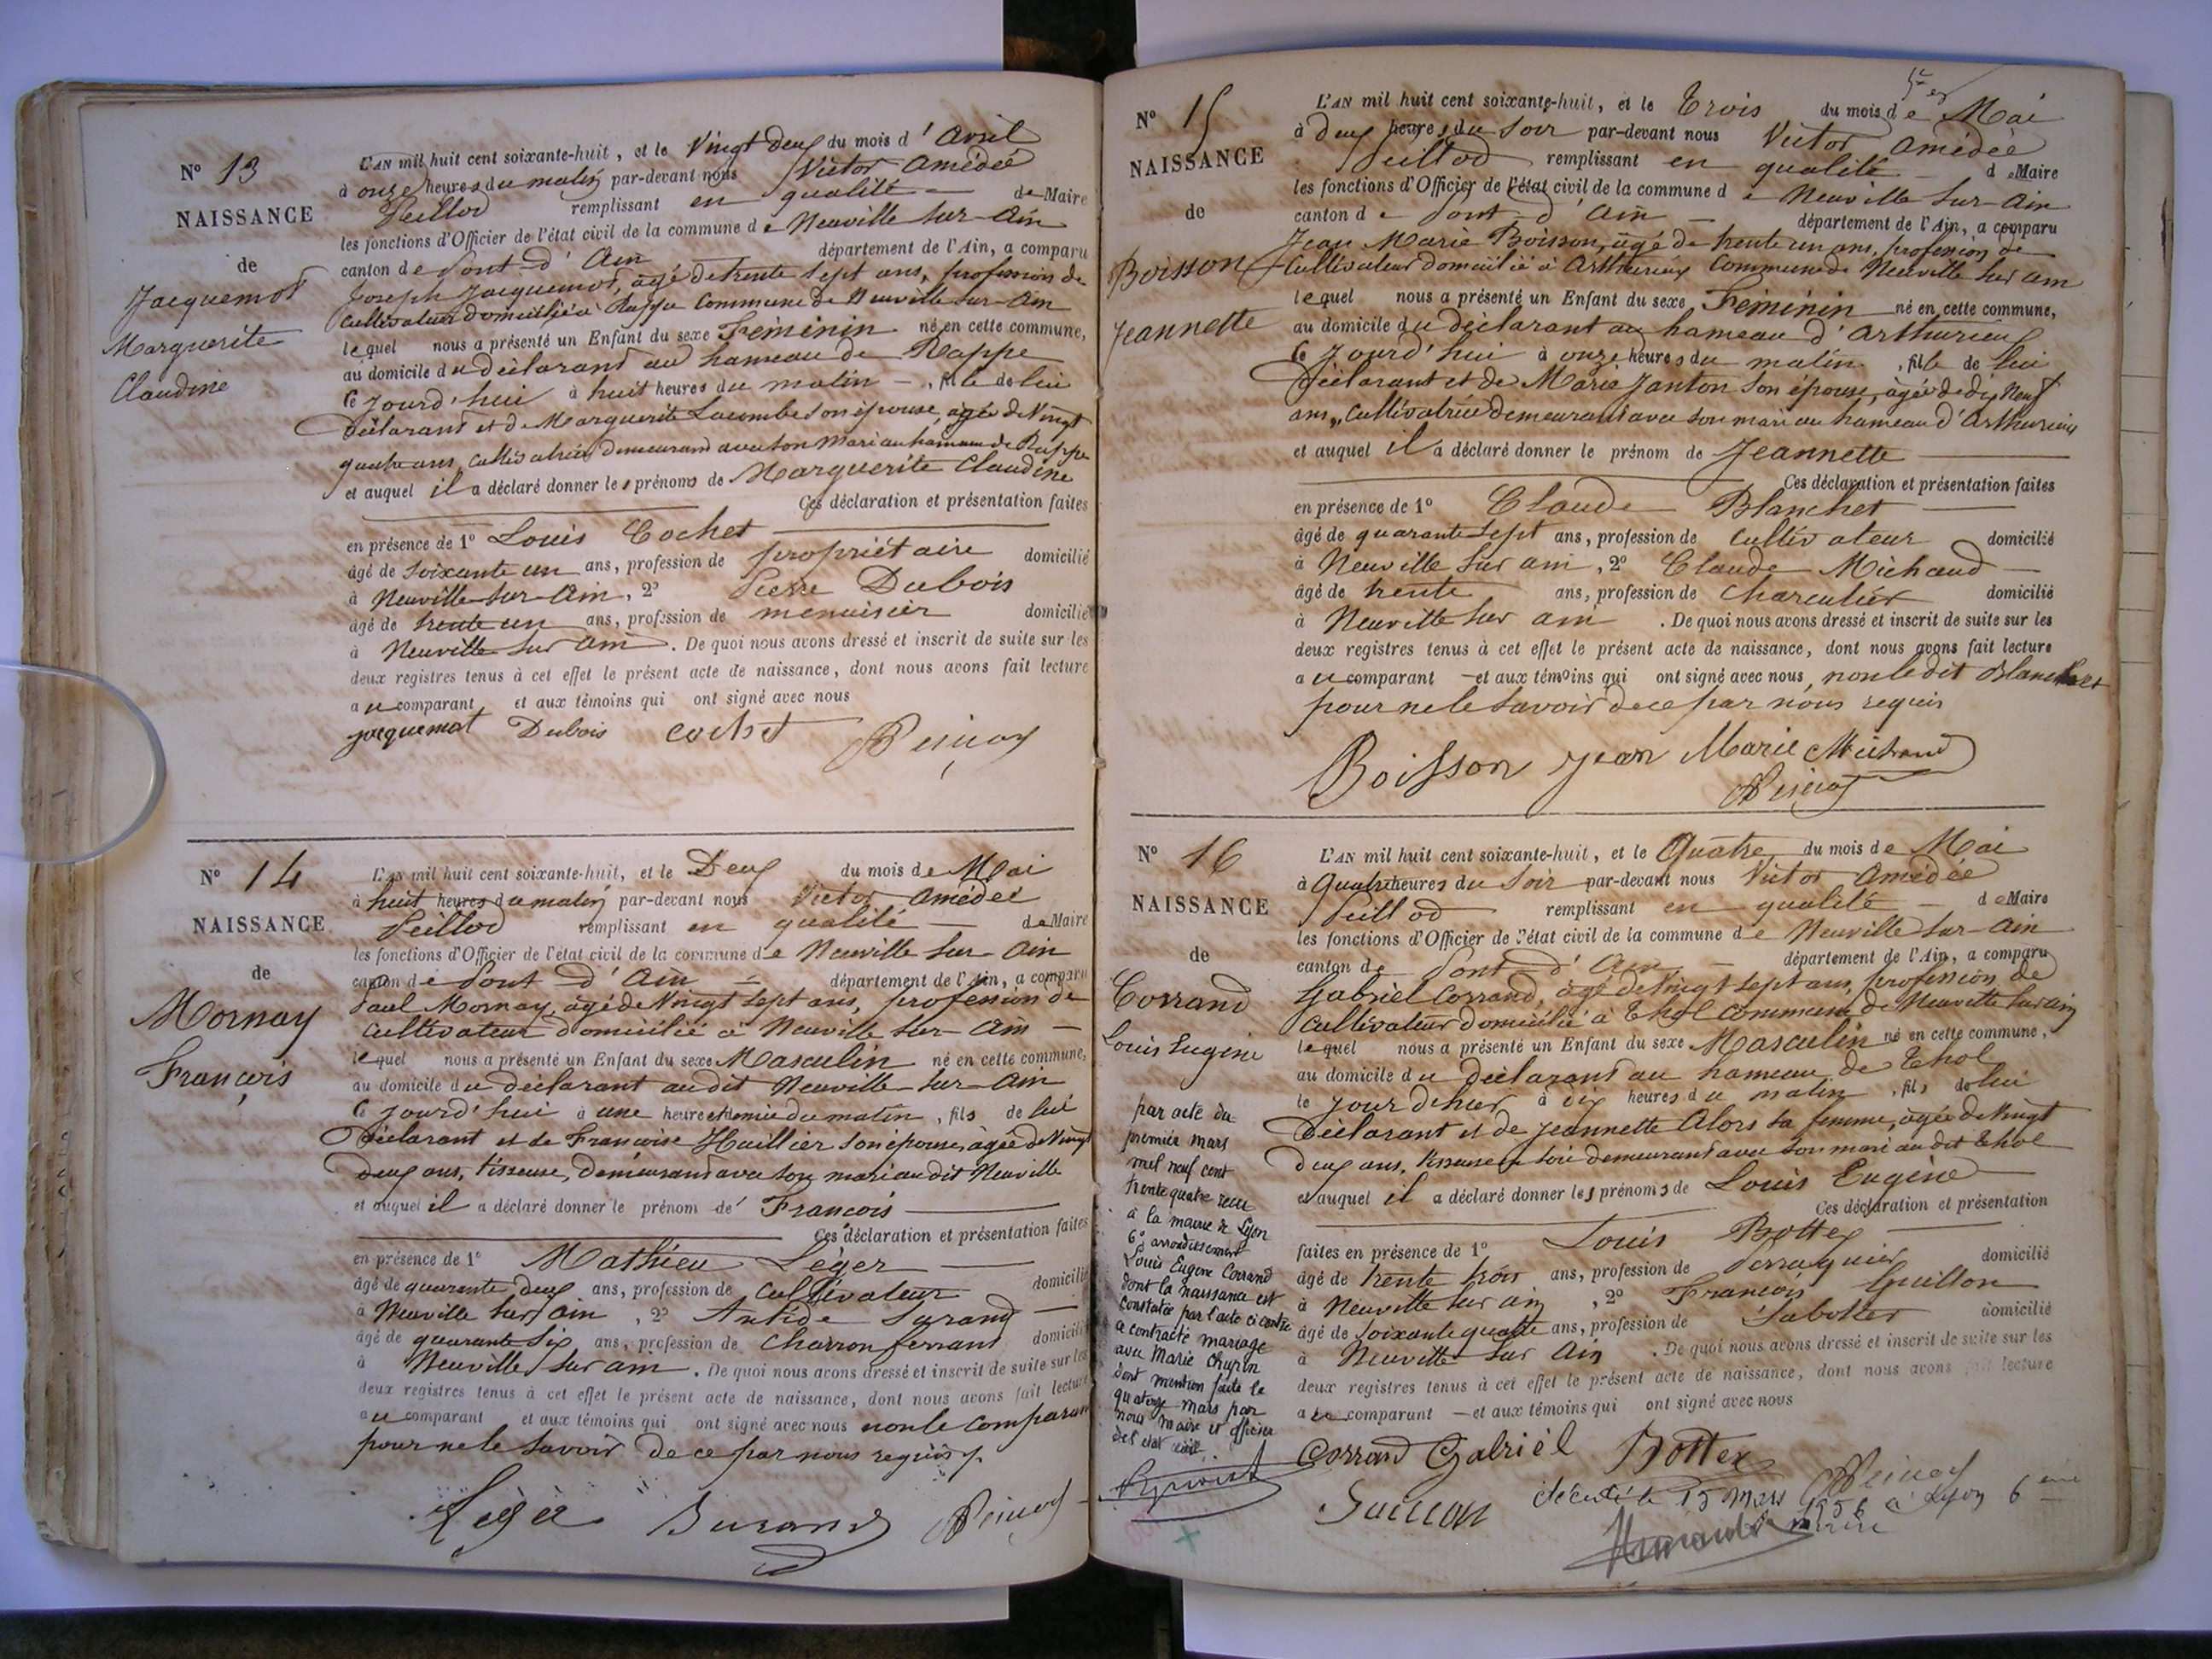 N° 13
NAISSANCE
de
Jacquemot
Marguerite
Claudine
L'AN mil huit cent soixante-huit, et le Vingt deux du mois d'Avril
à onze heures du matin par-devant nous Victor Amédée
Peillod remplissant en qualité de Maire
les fonctions d'Officier de l'état civil de la commune de Neuville sur-Ain
canton de Pont-d'Ain département de l'Ain, a comparu
Joseph Jacquemot, âgé de trente sept ans, profession de
cultivateur domicilié à Rappe Commune de Neuville sur-Ain
lequel nous a présenté un Enfant du sexe Féminin né en cette commune,
au domicile du déclarant au hameau de Rappe
ce jourd'hui à huit heures du matin, fille de lui
déclarant et de Marguerite Lacombe son épouse, âgée de Vingt
quatre ans, cultivatrice demeurant avec son mari au hameau de Rappe
et auquel il a déclaré donner les prénoms de Marguerite Claudine
Ces déclaration et présentation faites
en présence de 1° Louis Cochet
âgé de soixante un ans, profession de propriétaire domicilié
à Neuville-sur-Ain, 2° Pierre Dubois
âgé de trente un ans, profession de menuisier domicilié
à Neuville sur Ain. De quoi nous avons dressé et inscrit de suite sur les
deux registres tenus à cet effet le présent acte de naissance, dont nous avons fait lecture
au comparant et aux témoins qui ont signé avec nous
jacquemot Dubois cochet
N° 14
NAISSANCE
de
Mornay
François
L'AN mil huit cent soixante-huit, et le Deux du mois de Mai
à huit heures du matin par-devant nous Victor Amédée
Peillod remplissant en qualité de Maire
les fonctions d'Officier de l'état civil de la commune de Neuville sur-Ain
canton de Pont-d'Ain département de l'Ain, a comparu
Paul Mornay, âgé de Vingt sept ans, profession de
cultivateur domicilié à Neuville sur-Ain
lequel nous a présenté un Enfant du sexe Masculin né en cette commune,
au domicile du déclarant audit Neuville-sur-Ain
ce jourd'hui à une heure et demie du matin, fils de lui
déclarant et de Françoise Huillier son épouse, âgée de Vingt
deux ans, tisseuse, demeurant avec son mari audit Neuville
et auquel il a déclaré donner le prénom de François
Ces déclaration et présentation faites
en présence de 1° Mathieu Léger
âgé de quarante deux ans, profession de cultivateur domicilié
à Neuville sur ain, 2° Antide
âgé de quarante six ans, profession de Charron ferrant domicilié
à Neuville sur ain. De quoi nous avons dressé et inscrit de suite sur les
deux registres tenus à cet effet le présent acte de naissance, dont nous avons fait lecture
au comparant et aux témoins qui ont signé avec nous non le comparant
pour ne le savoir de ce par nous requis
Léger
N° 15
NAISSANCE
de
Boisson
Jeannette
L'AN mil huit cent soixante-huit, et le Trois du mois de Mai
à deux heures du soir par-devant nous Victor Amédée
Peillod remplissant en qualité de Maire
les fonctions d'Officier de l'état civil de la commune de Neuville sur-Ain
canton de Pont-d'Ain département de l'Ain, a comparu
Jean Marie Boisson, âgé de trente un ans, profession de
cultivateur domicilié à Arthurieux Commune de Neuville sur ain
lequel nous a présenté un Enfant du sexe Féminin né en cette commune,
au domicile du déclarant au hameau d'Arthurieux
ce jourd'hui à onze heures du matin, fille de lui
déclarant et de Marie Janton son épouse, âgée de dix Neuf
ans, cultivatrice demeurant avec son mari au hameau d'Arthurieux
et auquel il a déclaré donner le prénom de Jeannette
Ces déclaration et présentation faites
en présence de 1° Claude Blanchet
âgé de quarante sept ans, profession de cultivateur domicilié
à Neuville sur ain, 2° Claude Michaud
âgé de trente ans, profession de charcutier domicilié
à Neuville sur ain. De quoi nous avons dressé et inscrit de suite sur les
deux registres tenus à cet effet le présent acte de naissance, dont nous avons fait lecture
au comparant et aux témoins qui ont signé avec nous, non le dit Blanchet
pour ne le savoir de ce par nous requis
Boisson jean Marie Michaud
N° 16
NAISSANCE
de
Corrand
Louis Eugène
par acte du
premier mars
mil neuf cent
trente quatre recu
à la mairie de Lyon
6° arrondissement
Louis Eugène Corrand
dont la naissance est
constatée par l'acte ci contre
a contracté mariage
avec Marie Chupin
dont mention faite le
quatorze mars par
nous maire et officier
de l'état civil
L'AN mil huit cent soixante-huit, et le Quatre du mois de Mai
à Quatre heures du soir par-devant nous Victor Amédée
Peillod remplissant en qualité de Maire
les fonctions d'Officier de l'état civil de la commune de Neuville sur-Ain
canton de Pont-d'Ain département de l'Ain, a comparu
Gabriel Corrand, âgé de Vingt sept ans, profession de
cultivateur domicilié à Thol commune de Neuville sur ain
lequel nous a présenté un Enfant du sexe Masculin né en cette commune,
au domicile du déclarant au hameau de Thol
le jour d'hier à dix heures du matin, fils de lui
déclarant et de Jeannette Alors sa femme, âgée de Vingt
deux ans, tisseuse en soie demeurant avec son mari au dit Thol
et auquel il a déclaré donner les prénoms de Louis Eugène
Ces déclaration et présentation
faites en présence de 1° Louis Bottex
âgé de trente trois ans, profession de Perruquier domicilié
à Neuville sur ain, 2° François Guillon
âgé de soixante quatre ans, profession de Sabotier domicilié
à Neuville sur Ain. De quoi nous avons dressé et inscrit de suite sur les
deux registres tenus à cet effet le présent acte de naissance, dont nous avons fait lecture
au comparant et aux témoins qui ont signé avec nous
Corrand Gabriel Bottex
Guillon
décédé le 15 mars 1956 à Lyon 6ème